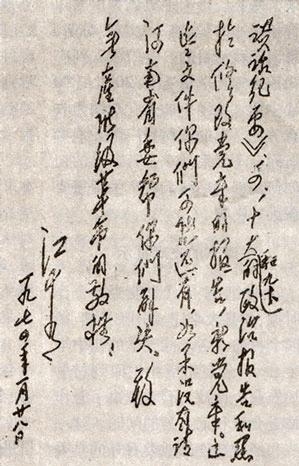 谈话纪要》、十大的政治报告和关
和九大
于修改党章的报告、新党章、这
些文件你们可能还有，如果没有请
河南省委帮你们解决。致
无产阶级革命的敬礼！
江青
一九七四年一月廿八日